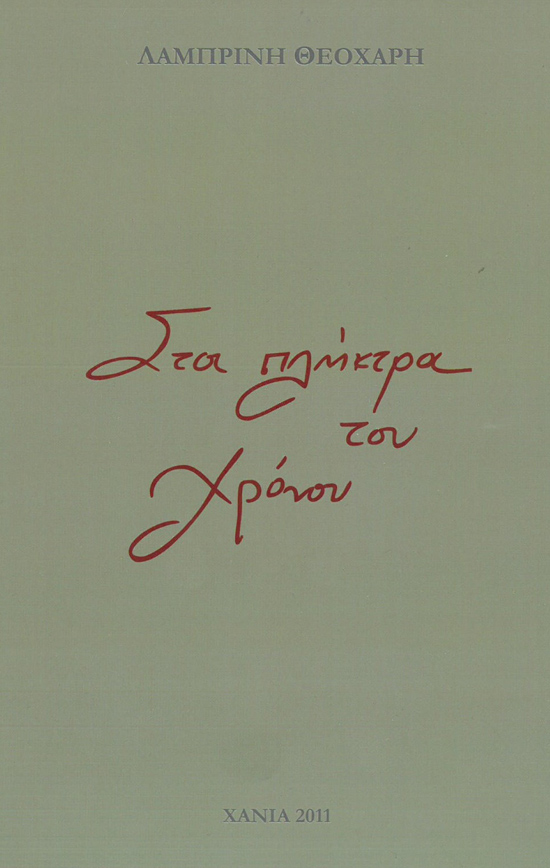 ΛΑΜΠΡΙΝΗ ΘΕΟΧΑΡΗ
Στα πλήκτρα
του
χρόνου
ΧΑΝΙΑ 2011